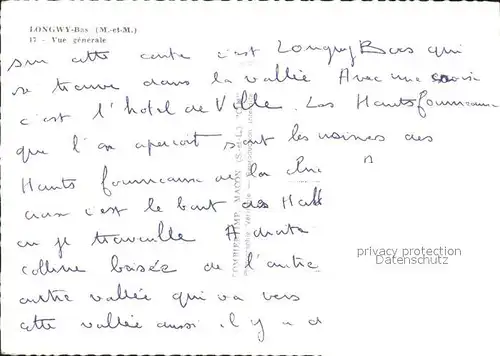 LONGWY-Bas (M.-et-M.)
17 - Vue générale
sur cette carte c'est Longwy Bas qui
se trouve dans la vallée Avec une croix
c'est l'hotel de Ville. Les Hauts fourneaux
que l'on aperçoit sont les usines des
Hauts fourneaux de la
croix c'est le bout des Hall
ou je travaille A droite
colline boisée de l'autre
autre vallée qui va vers
cette vallée aussi il y a d
COMBIER IMP. MACON (S.-et-L.)
privacy protection
Datenschutz